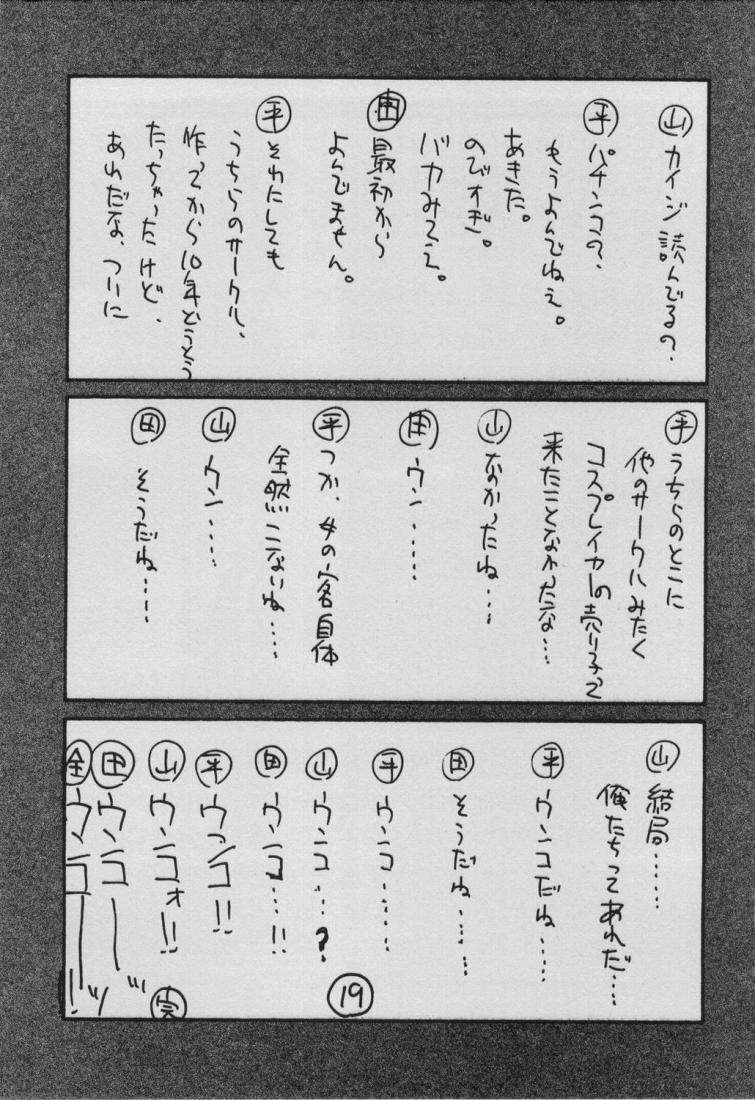 山 カイジ読んでるの?
平 パチンコの?
もうよんでねえ。
あきた。
のびすぎ。
バカみてえ。
田 最初から
よんでません。
平 それにしても
うちらのサークル、
作ってから10年どうこう
たっちゃったけど、
あれだな、ついに
平 うちらのとこに
他のサークルみたく
コスプレイヤーの売り子って
来たことなかったな…
山 なかったね…
田 ウン……
平 つか、女の客自体
全然こないね……
山 ウン……
田 そうだね……
山 結局……
俺たちってあれだ…
平 ウンコだね……
田 そうだね……
平 ウンコ……
山 ウンコ…?
田 ウンコ…!!
平 ウンコ!!
山 ウンコォ!!
田 ウンコーッ
全 ウンコーッ!
完
19